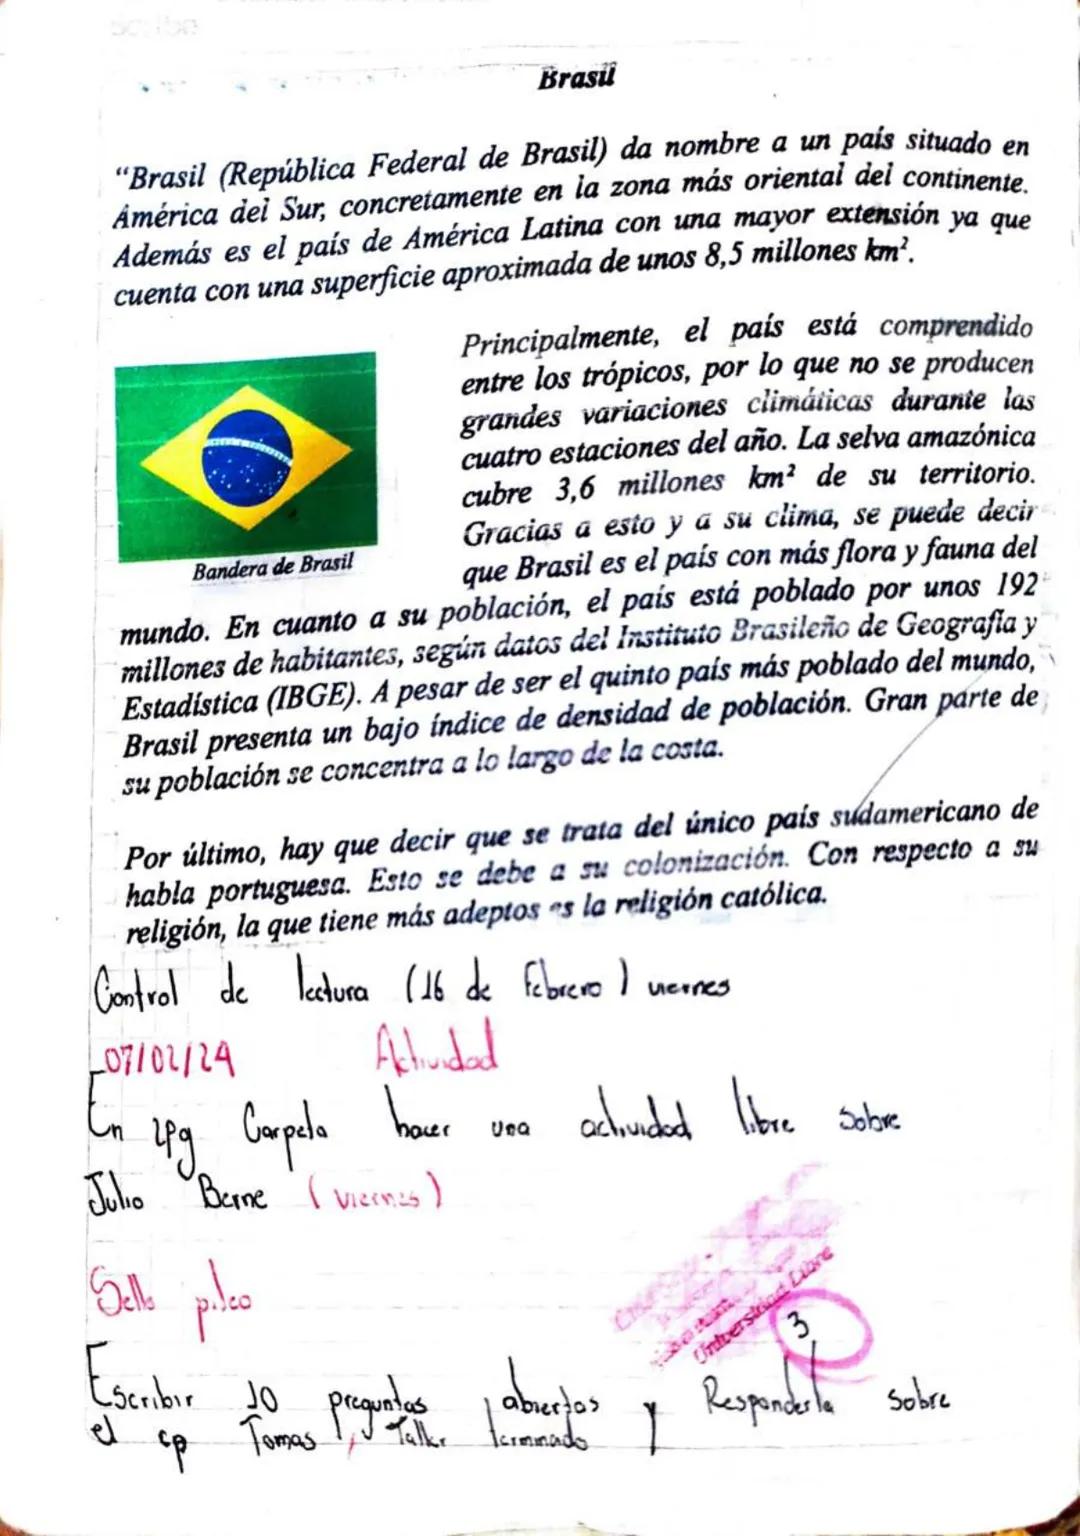 Brasil
“Brasil (República Federal de Brasil) da nombre a un país situado en
América del Sur, concretamente en la zona más oriental del continente.
Además es el país de América Latina con una mayor extensión ya que
cuenta con una superficie aproximada de unos 8,5 millones km².
Principalmente, el país está comprendido
entre los trópicos, por lo que no se producen
grandes variaciones climáticas durante las
cuatro estaciones del año. La selva amazónica
cubre 3,6 millones km² de su territorio.
Gracias a esto y a su clima, se puede decir
que Brasil es el país con más flora y fauna del
Bandera de Brasil
mundo. En cuanto a su población, el país está poblado por unos 192
millones de habitantes, según datos del Instituto Brasileño de Geografía y
Estadística (IBGE). A pesar de ser el quinto país más poblado del mundo,
Brasil presenta un bajo índice de densidad de población. Gran parte de
su población se concentra a lo largo de la costa.
Por último, hay que decir que se trata del único país sudamericano de
habla portuguesa. Esto se debe a su colonización. Con respecto a su
religión, la que tiene más adeptos es la religión católica.
Control de lectura (16 de Febrero) viernes
07/02/24 Actividad
En 1pg Carpeta hacer una actividad libre sobre
Julio Berne (viernes)
Sello
Universidad Libre
3
Escribir 10 preguntas abiertas y Responderla sobre
el cp Tomas, Taller terminado